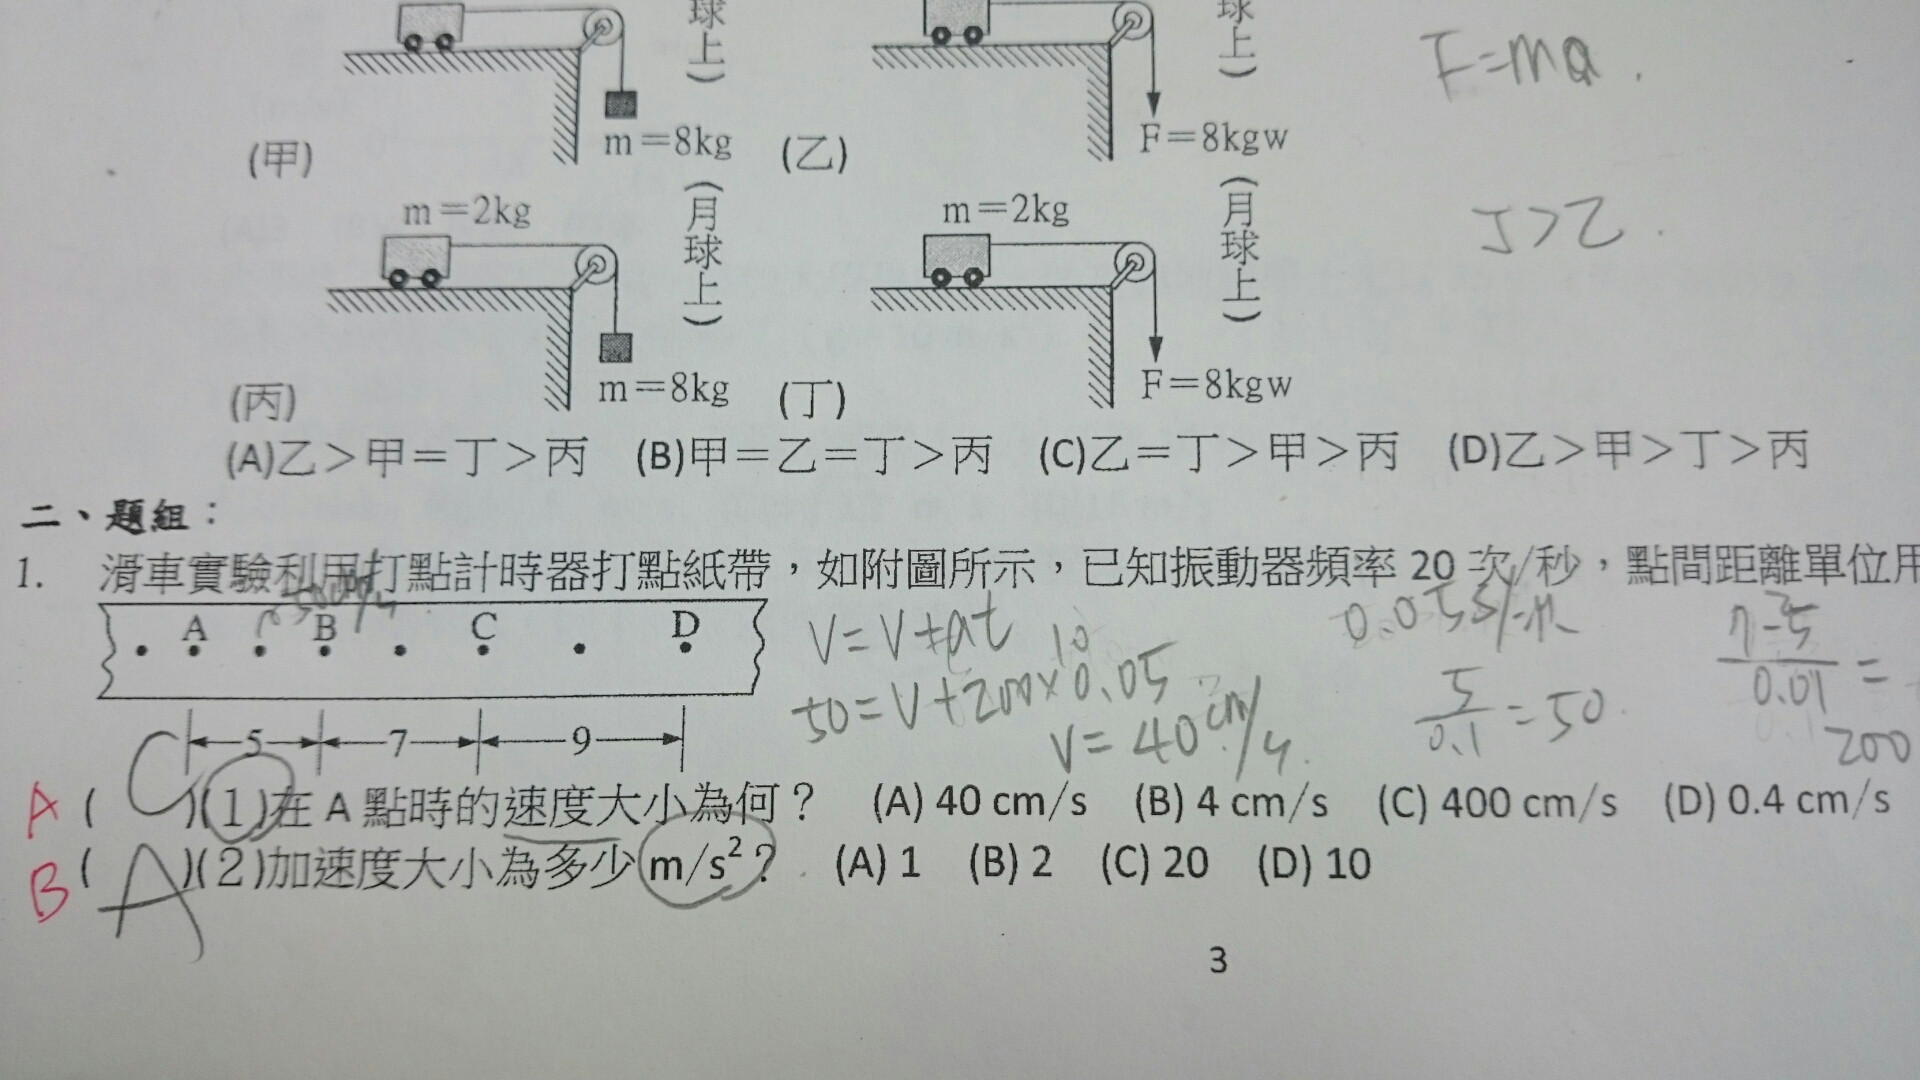 球上)
球上)
F=ma.
m=8kg
F=8kgw
(甲)
(乙)
m=2kg
(月球上)
m=2kg
(月球上)
丁>乙.
m=8kg
F=8kgw
(丙)
(丁)
(A)乙>甲=丁>丙 (B)甲=乙=丁>丙 (C)乙=丁>甲>丙 (D)乙>甲>丁>丙
二、題組:
1. 滑車實驗利用打點計時器打點紙帶,如附圖所示,已知振動器頻率20次/秒,點間距離單位用
A B C D
V=V+at
50=V+200×0.05
10
V=40cm/s
5/0.1=50
7-5/0.01=
200
5 7 9
A ( C )(1)在A點時的速度大小為何? (A) 40 cm/s (B) 4 cm/s (C) 400 cm/s (D) 0.4 cm/s
B ( A )(2)加速度大小為多少m/s²? (A) 1 (B) 2 (C) 20 (D) 10
3